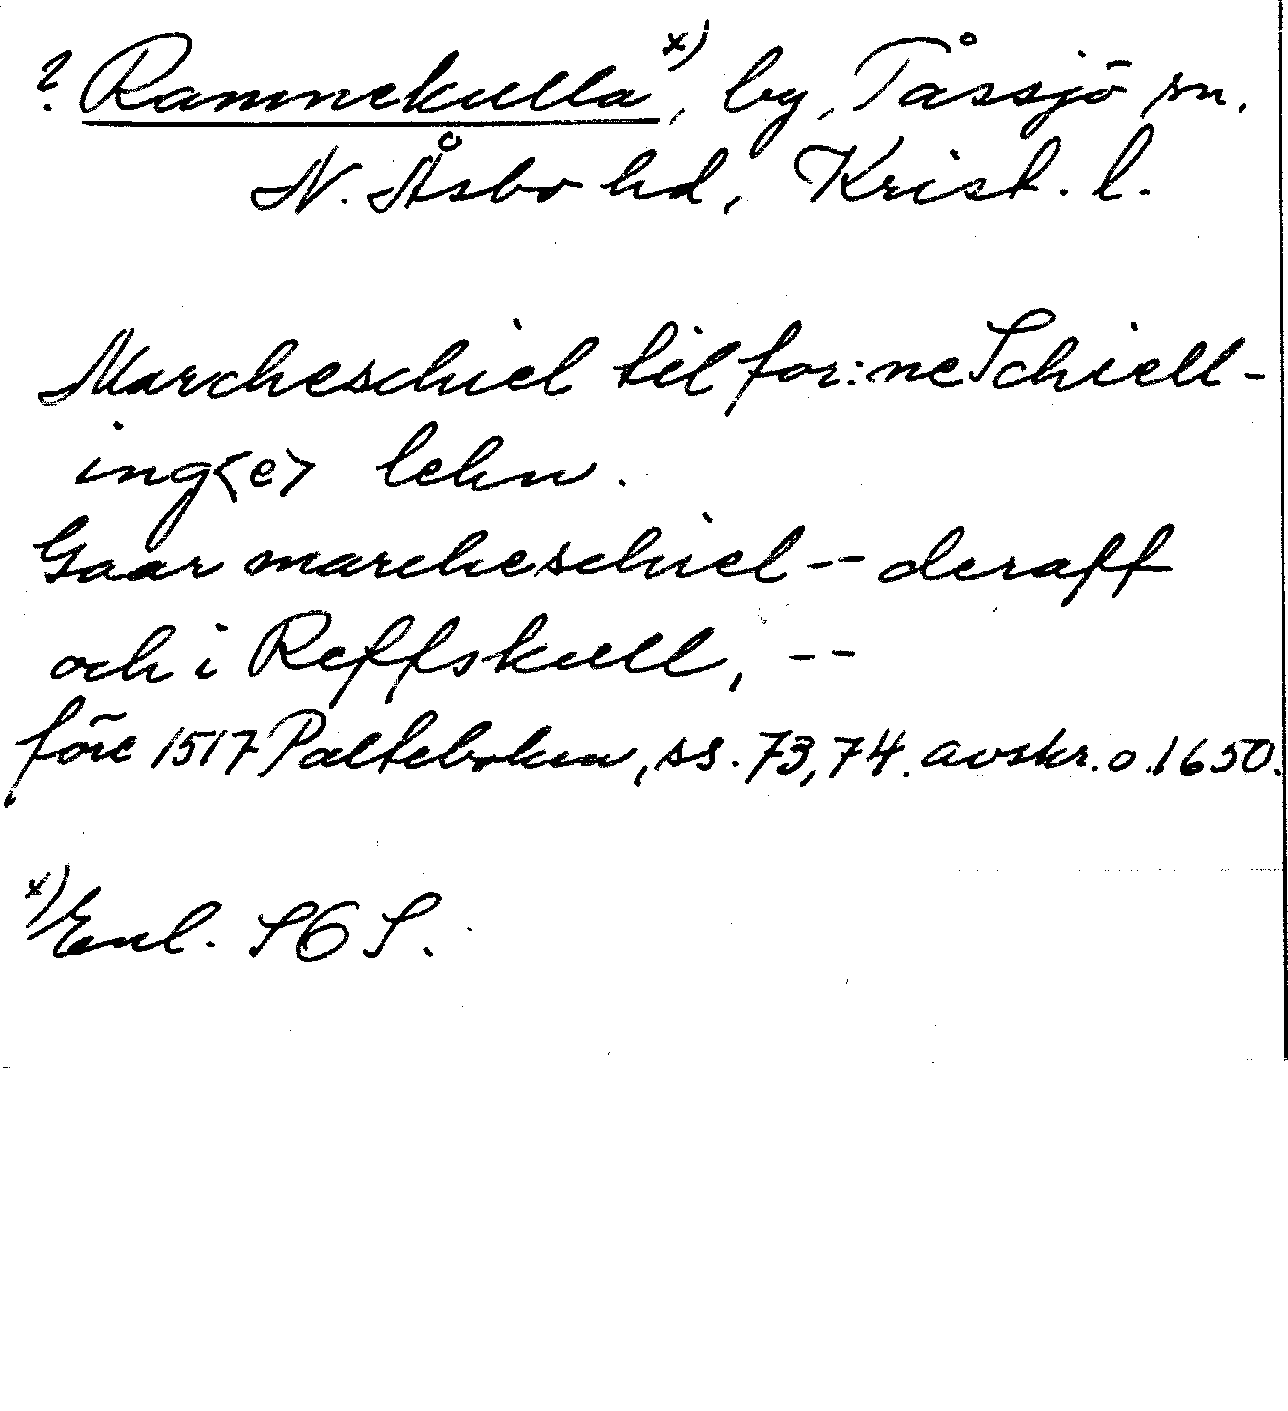 ? Ramnekulla x), by, Tåssjö sn,
N. Åsbo hd, Krist. l.
Marcheschiel til for:ne Schiell-
ing<e> lehn.
Gaar marcheschiel -- deraff
och i Reffskull, --
före 1517 Palteboken, ss. 73, 74. avskr. o. 1650.
x) Enl. SOS.